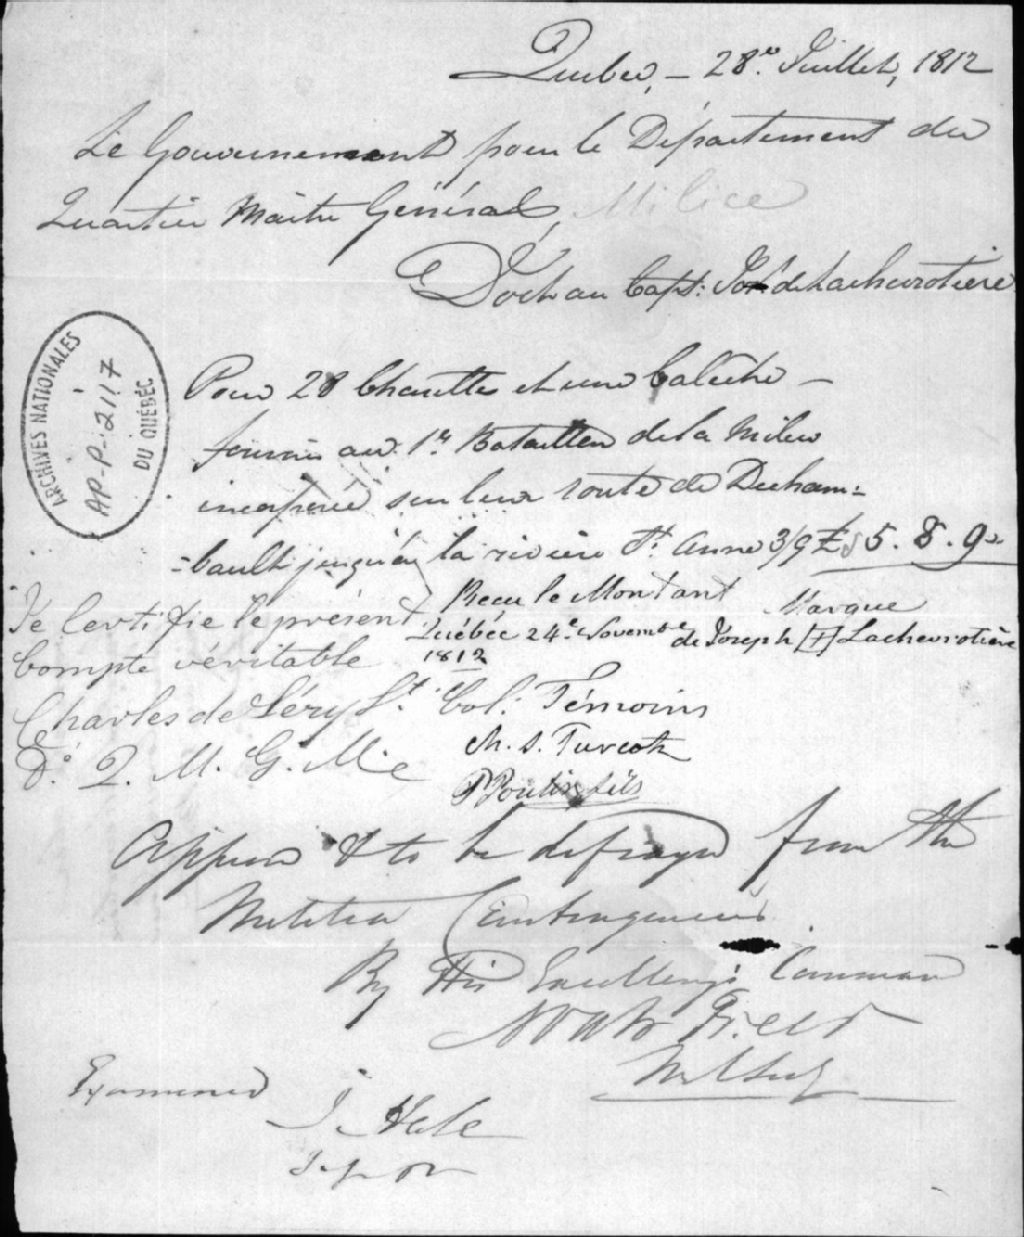 Quebec, - 28.e Juillet, 1812
Le Gouvernement pour le Département du
Quartier Maitre Général, Milice
Doit au Capt: Jos. de Lachevrotiere
Pour 28 Charettes et une Caleche -
fournis au 1r Bataillon de la Milice
incorporée sur leur route de Decham=
=bault jusqu'à la riviere St. Anne 3/9 £ 5. 8. 9
ARCHIVES NATIONALES
AP-P-2117
DU QUÉBEC
Recu le Montant
Québéc 24e Novembre
1812
Marque
de Joseph [+] Lachevrotière
Je Certifie le présent
Compte véritable
Charles de Léry Lt. Col.
D. Q. M. G. M.
Témoins
Ch. S. Turcotte
P Poulin fils
Approved & to be defrayed from the
Militia Contingencies
By His Excellency's Command
Noah Freer
Mil Secy
Examined
J. Hale